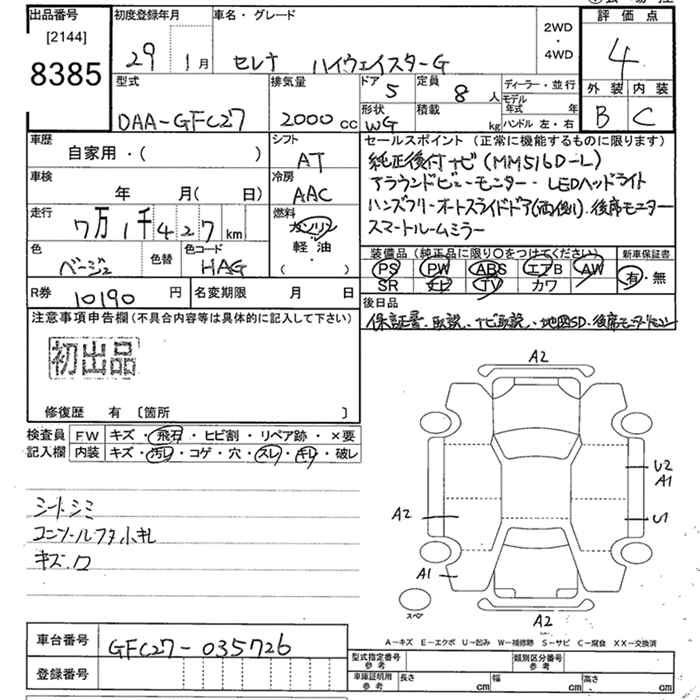 出品番号
[2144]
8385
初度登録年月
29 1月
車名・グレード
セレナ ハイウェイスターG
2WD
・
4WD
評価点
4
外装 内装
B C
型式
DAA-GFC27
排気量
2000 cc
ドア 5
定員 8 人
形状 WG
積載 kg
ディーラー・並行
モデル年式 年
ハンドル 左・右
車歴
自家用・( )
シフト
AT
車検
年 月( 日)
冷房
AAC
走行
7万1千427km
燃料
ガソリン
軽油
( )
色
ベージュ
色替
色コード
HAG
R券 10190 円
名変期限 月 日
セールスポイント (正常に機能するものに限ります)
純正後付ナビ(MM516D-L)
アラウンドビューモニター・LEDヘッドライト
ハンズフリーオートスライドドア(両側)・後席モニター
スマートルームミラー
装備品 (純正品に限り○をつけてください)
PS PW ABS エアB AW
SR ナビ TV カワ
新車保証書
有・無
後日品
保証書、取説、ナビ取説、地図SD、後席モニターリモコン
注意事項申告欄(不具合内容等は具体的に記入して下さい)
初出品
修復歴 有 [箇所 ]
検査員記入欄
FW キズ・飛石・ヒビ割・リペア跡・×要
内装 キズ・汚レ・コゲ・穴・スレ・キレ・破レ
シートシミ
コンソールフタ小キレ
キズ・
A2
U2
A1
A2
U1
A1
スペア
A2
A-キズ E-エクボ U-凹み W-補修跡 S-サビ C-腐食 XX-交換済
車台番号 GFC27-035726
登録番号
型式指定番号 参考
類別区分番号 参考
車庫証明用 参考 長さ cm 幅 cm 高さ cm